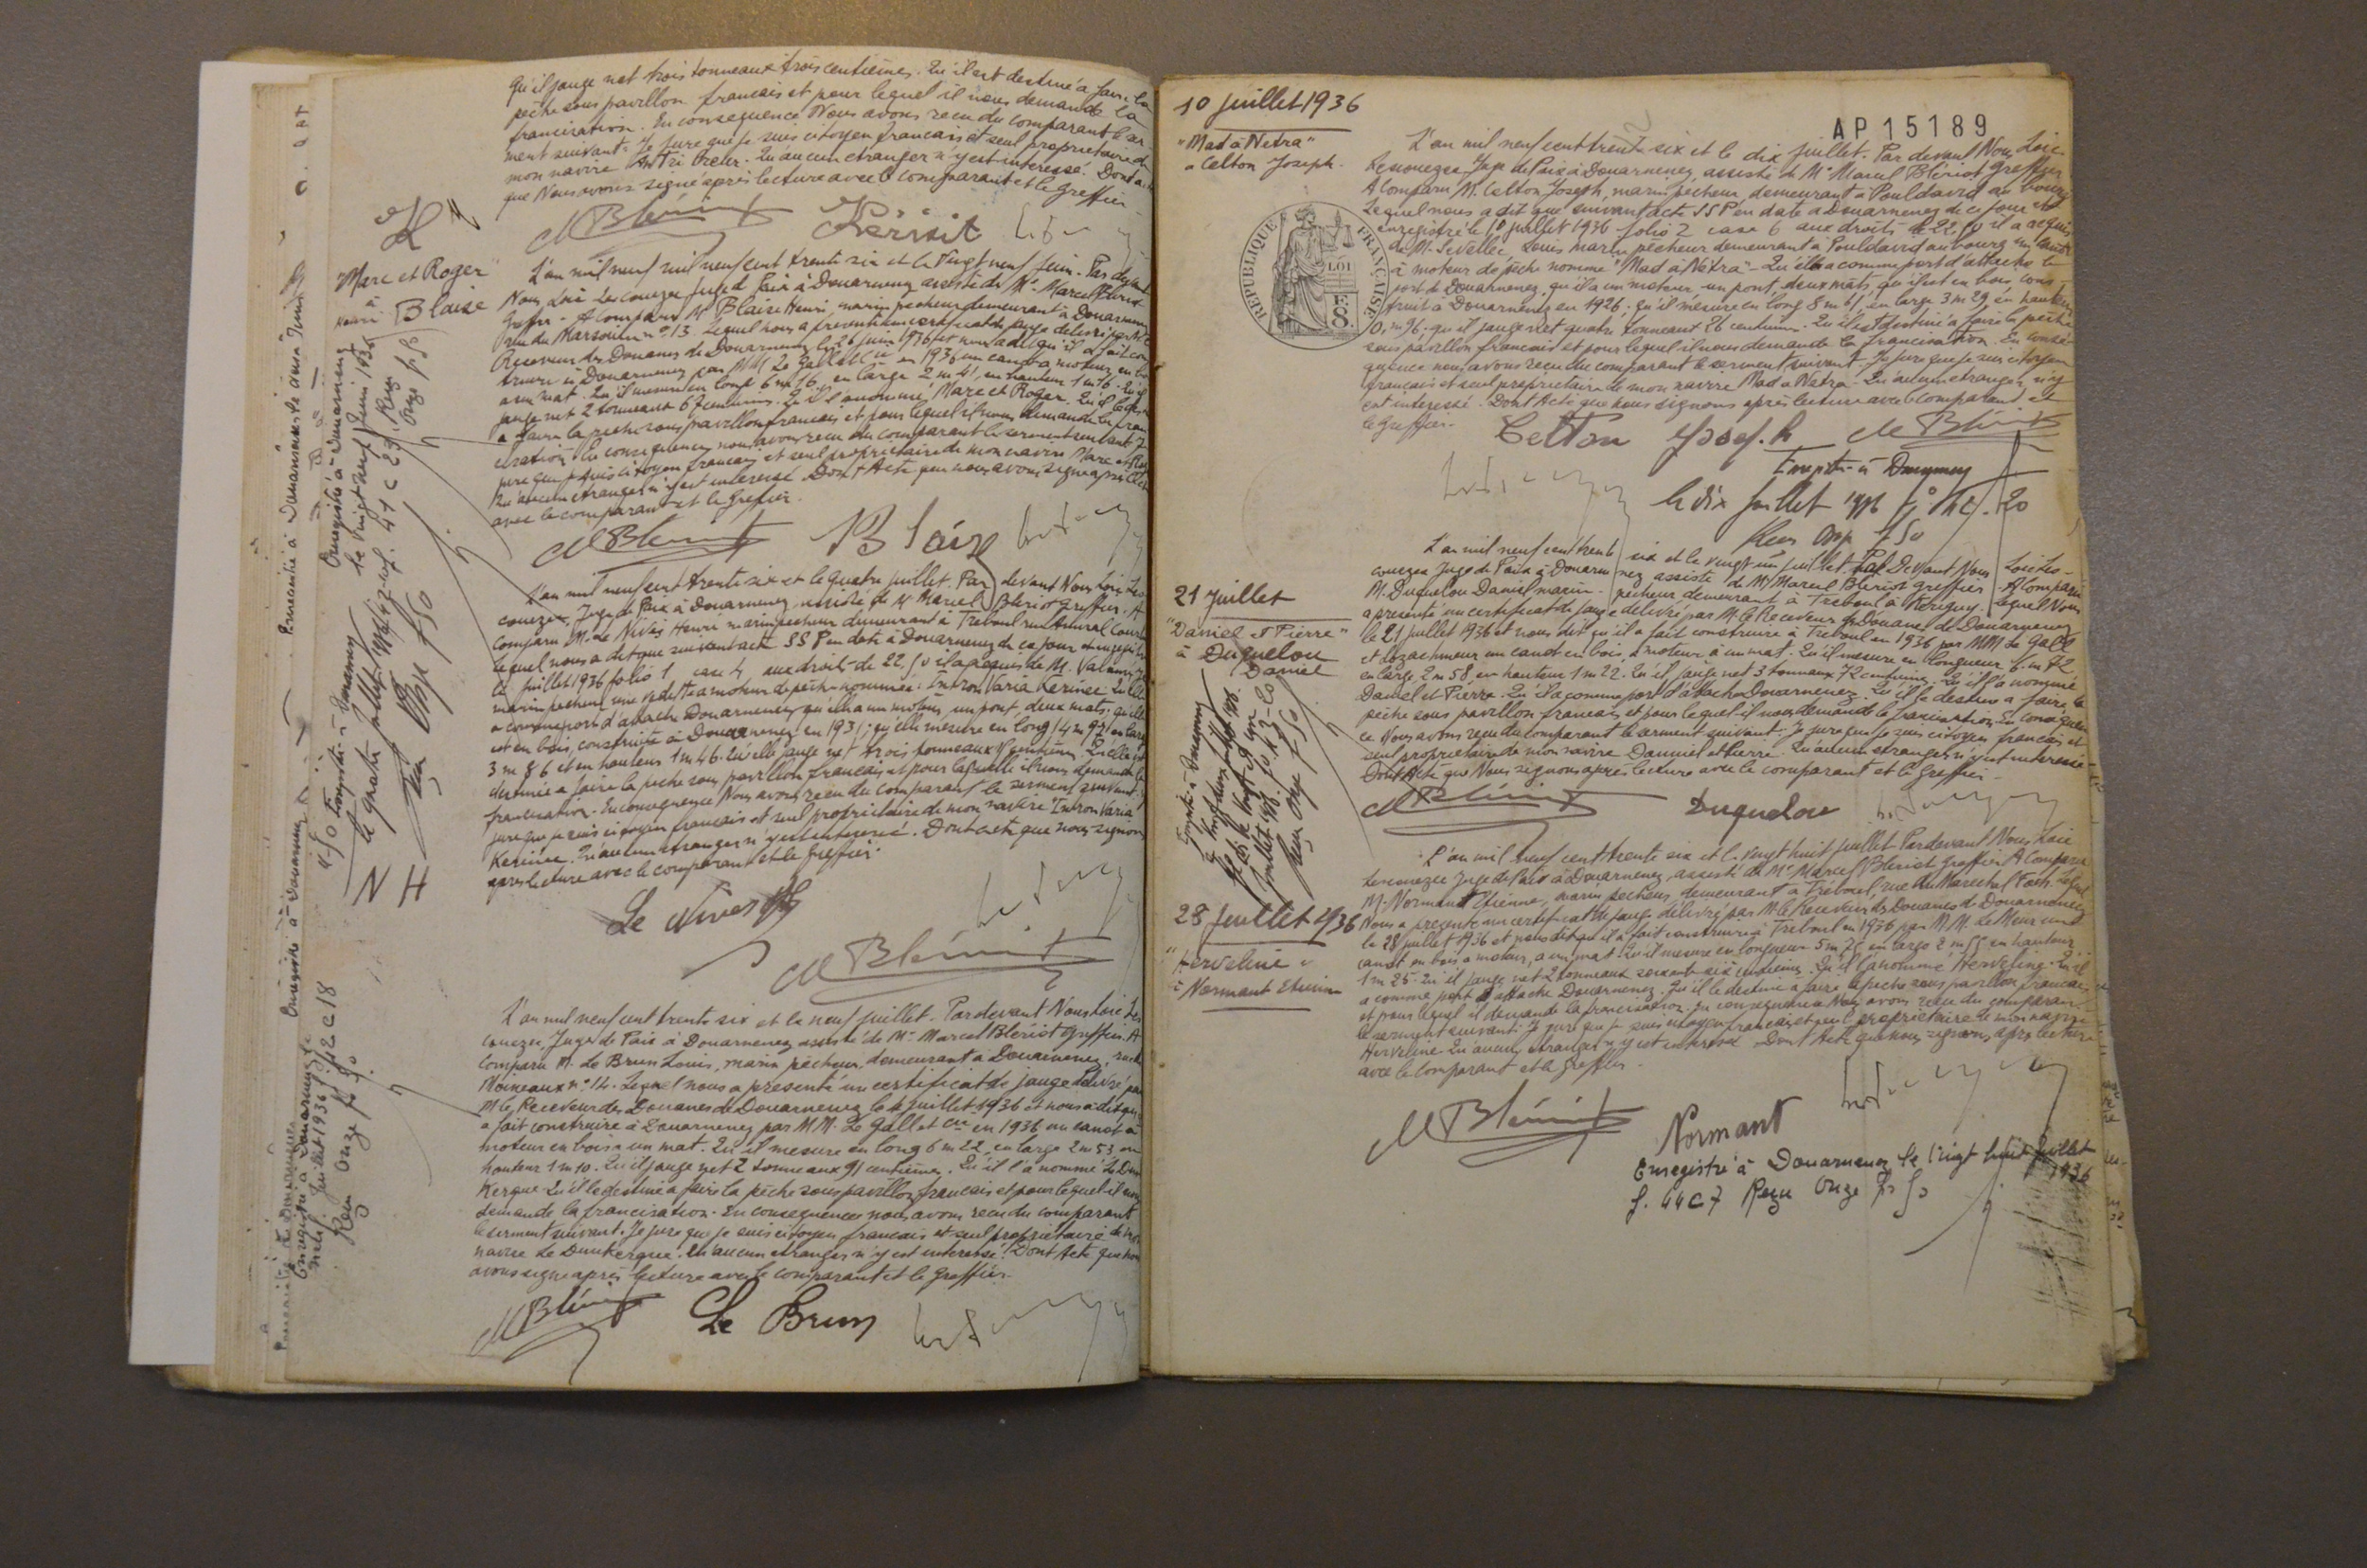 Qu'il jauge net trois tonneaux trois centièmes. Qu'il est destiné à faire la
pêche sous pavillon francais et pour lequel il nous demande la
francisation. En consequence Nous avons recu du comparant le ser
ment suivant. Je jure que je suis citoyen francais et seul proprietaire de
mon navire Qu'aucun etranger n'y est interessé. Dont acte
que Nous avons signé après lecture avec le comparant et le Greffier
MBlériot Kérisit
"Marc et Roger"
à
Henri Blaise
L'an mil neuf mil neuf cent trente six et le Vingt neuf Juin. Par devant
Nous Loïc Lescouezec Juge de Paix à Douarnenez assisté de Mr Marcel Blériot
Greffier. A Comparu Mr Blaise Henri, marin pecheur demeurant à Douarnenez
Rue du Marsouin n° 13 Lequel nous a presenté un certificat de jauge delivré par M le
Receveur des Douanes de Douarnenez le 26 juin 1936 et nous a dit qu'il a fait cons
truire à Douarnenez par MM Le Gall et Cie en 1936 un canot à moteur en bois
a un mat. Qu'il mesure en long 6 m 16 en large 2 m 41, en hauteur 1 m 16. Qu'il
jauge net 2 tonneaux 67 centièmes. Qu'il l'a nommé Marc et Roger. Qu'il le destine
a faire la peche sous pavillon francais et pour lequel il nous demande la fran
cisation. En consequence nous avons recu du comparant le serment suivant Je
jure que je suis citoyen francais et seul proprietaire de mon navire Marc et Roger
Qu'aucun etranger n'y est interessé. Dont Acte que nous avons signé après lecture
avec le comparant et le Greffier.
MBlériot Blaise
L'an mil neuf cent trente six et le quatre juillet. Par devant Nous Loïc Les
couezec, Juge de Paix à Douarnenez assisté de Mr Marcel Blériot Greffier. A
Comparu M. Le Nivès Henri marin pecheur demeurant à Treboul rue Amiral Courbet
Lequel nous a dit que suivant acte SSP en date à Douarnenez de ce jour enregistré
le juillet 1936 folio 1 case 4 aux droits de 22,50 il a acquis de M.
marin pecheur une vedette a moteur de peche nommée: Intron Varia Kerinec Qu'elle
a comme port d'attache Douarnenez qu'elle a un moteur, un pont, deux mats; qu'elle
est en bois, construite à Douarnenez en 1931; qu'elle mesure en long en large
3 m 86 et en hauteur 1 m 46. Qu'elle jauge net trois tonneaux centièmes. Qu'elle est
destinée a faire la peche sous pavillon francais et pour laquelle il nous demande la
francisation. En consequence Nous avons recu du comparant le serment suivant. Je
jure que je suis citoyen francais et seul proprietaire de mon navire "Intron Varia
Kerinec. Qu'aucun etranger n'y est interessé. Dont acte que nous signons
après lecture avec le comparant et le Greffier.
N H
Le Nives
MBlériot
L'an mil neuf cent trente six et le neuf juillet. Par devant Nous Loïc Les
couezec, Juge de Paix à Douarnenez assisté de Mr Marcel Blériot Greffier. A
Comparu M. Le Brun Louis, marin pêcheur, demeurant à Douarnenez, rue des
Moineaux n° 14. Lequel nous a presenté un certificat de jauge delivré par
M le Receveur des Douanes de Douarnenez le juillet 1936 et nous a dit qu'il
a fait construire à Douarnenez par MM. Le Gall et Cie en 1936 un canot à
moteur en bois a un mat. Qu'il mesure en long 6 m 22, en large 2 m 53, en
hauteur 1 m 10. Qu'il jauge net 2 tonneaux 91 centièmes. Qu'il l'a nommé Le Dun
kerque. Qu'il le destine à faire la pêche sous pavillon francais et pour lequel il nous
demande la francisation. En consequence nous avons recu du comparant
le serment suivant. Je jure que je suis citoyen francais et seul proprietaire de mon
navire Le Dunkerque. Qu'aucun etranger n'y est interessé. Dont Acte que nous
avons signé après lecture avec le comparant et le Greffier.
MBlériot Le Brun
Enregistré à Douarnenez le
neuf juillet 1936 f. 42 c 18
Reçu Onze fs 50
10 Juillet 1936
"Mad a Netra"
a Celton Joseph
AP 15189
REPUBLIQUE FRANÇAISE
LOI
F
8.
L'an mil neuf cent trente six et le dix juillet. Par devant Nous Loïc
Lescouezec Juge de Paix à Douarnenez, assisté de Mr Marcel Blériot Greffier
A Comparu M. Celton Joseph, marin pecheur, demeurant à Pouldavid au bourg
Lequel nous a dit que suivant acte SSP en date à Douarnenez de ce jour et
enregistré le 10 juillet 1936 folio 2 case 6 aux droits de 22,50 il a acquis
de M. Sevellec Louis marin pêcheur demeurant à Pouldavid au bourg un canot
à moteur de pêche nommé "Mad a Netra" - Qu'il a comme port d'attache le
port de Douarnenez, qu'il a un moteur, un pont, deux mats, qu'il est en bois, cons
truit à Douarnenez en 1926. qu'il mesure en long 8 m 61, en large 3 m 29 en hauteur
0, m 96. qu'il jauge net quatre tonneaux 26 centièmes. Qu'il est destiné à faire la pêche
sous pavillon francais et pour lequel il nous demande la francisation. En consé
quence nous avons recu du comparant le serment suivant. Je jure que je suis citoyen
francais et seul proprietaire de mon navire Mad a Netra. Qu'aucun etranger n'y
est interessé. Dont Acte que nous signons après lecture avec le comparant et
le Greffier.
Celton Joseph MBlériot
Enregistré à Douarnenez
le dix juillet 1936
Reçu onze f 50
21 Juillet
"Daniel et Pierre"
à Duquelou
Daniel
L'an mil neuf cent trente six et le vingt un juillet. Par Devant Nous Loïc Les-
couezec Juge de Paix à Douarnenez assisté de Mr Marcel Blériot greffier A Comparu
M. Duquelou Daniel marin-pecheur demeurant à Treboul à Kerigny. Lequel Nous
a presenté un certificat de jauge delivré par M. le Receveur des Douanes de Douarnenez
le 21 juillet 1936 et nous dit qu'il a fait construire à Treboul en 1936 par MM Le Gall
et Lozachmeur un canot en bois, à moteur à un mat. Qu'il mesure en longueur 6 m 72
en large 2 m 58, en hauteur 1 m 22. Qu'il jauge net 3 tonneaux 72 centièmes. Qu'il l'a nommé
Daniel et Pierre. Qu'il a comme port d'attache Douarnenez. Qu'il le destine a faire la
pêche sous pavillon francais et pour lequel il nous demande la francisation. En conséquen
ce Nous avons recu du comparant le serment suivant. Je jure que je suis citoyen francais et
seul proprietaire de mon navire Daniel et Pierre. Qu'aucun etranger n'y est interessé.
Dont Acte que Nous signons après lecture avec le comparant et le Greffier.
MBlériot Duquelou
28 Juillet 1936
"Herveline"
à Normant Etienne
L'an mil neuf cent trente six et le vingt huit juillet Par devant Nous Loïc
Lescouezec Juge de Paix à Douarnenez, assisté de Mr Marcel Blériot Greffier. A Comparu
M. Normant Etienne, marin pecheur, demeurant à Tréboul, rue du Marechal Foch. Lequel
Nous a presenté un certificat de jauge délivré par M. le Receveur des Douanes de Douarnenez
le 28 juillet 1936 et nous dit qu'il a fait construire à Treboul en 1936 par M.M. Le Meur un
canot en bois a moteur, a un mat. Qu'il mesure en longueur 5 m en large 2 m 55 en hauteur
1 m 25. Qu'il jauge net 2 tonneaux soixante six centièmes. Qu'il l'a nommé Herveline. Qu'il
a comme port d'attache Douarnenez. Qu'il le destine a faire la peche sous pavillon francais
et pour lequel il demande la francisation. En consequence Nous avons recu du comparant
le serment suivant. Je jure que je suis citoyen francais et seul proprietaire de mon navire
Herveline. Qu'aucun etranger n'y est interessé Dont Acte que nous signons après lecture
avec le Comparant et le Greffier.
MBlériot Normant
Enregistré à Douarnenez le Vingt huit Juillet
1936
f. 44 c 7 Reçu Onze fs 50